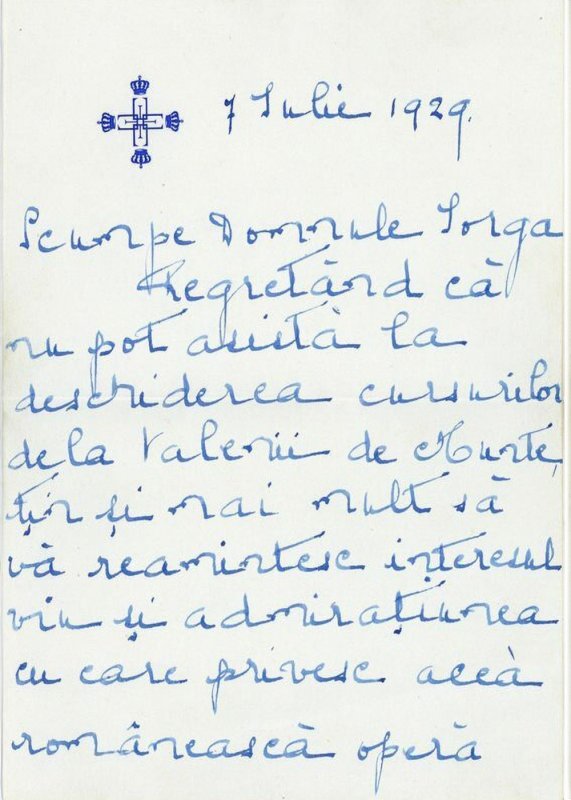 7 Iulie 1929.
Scumpe Domnule Iorga
Regretând că
nu pot asistà la
deschiderea cursurilor
de la Valenii de Munte,
țin și mai mult să
vă reamintesc interesul
viu și admirațiunea
cu care privesc aceà
românească operă